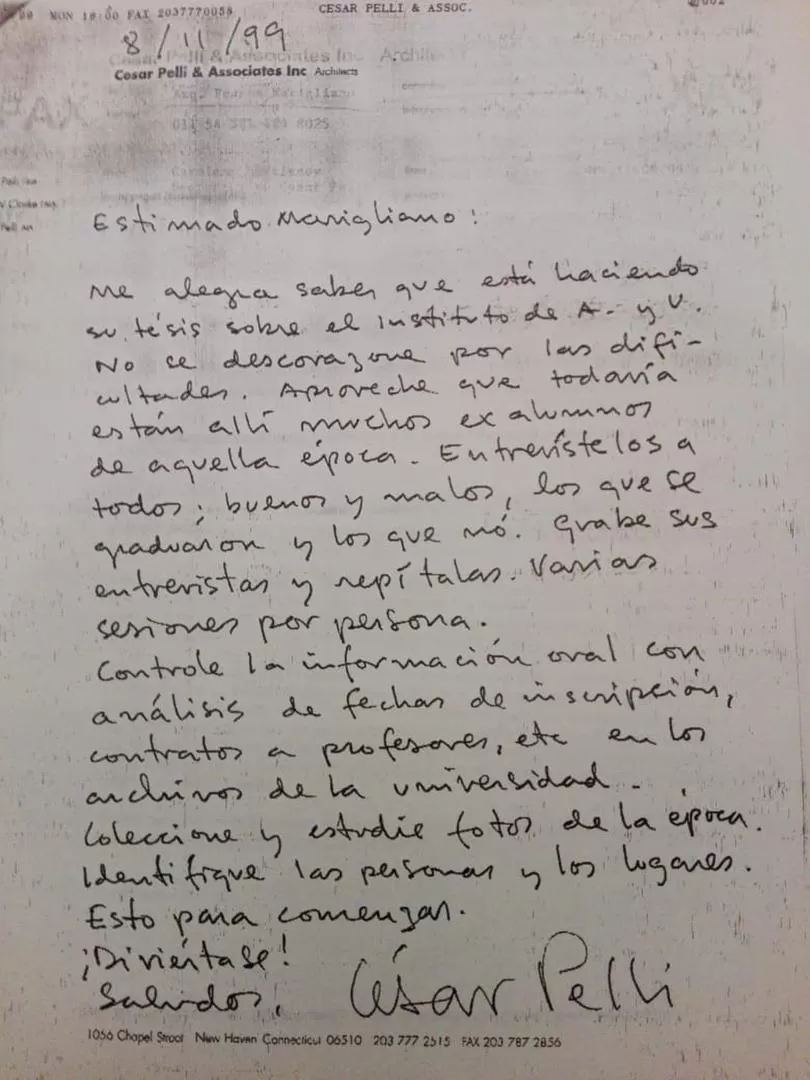 MON 16:00 FAX 2037770058 CESAR PELLI & ASSOC.
8/11/99
Cesar Pelli & Associates Inc Architects
Estimado Marigliano:
Me alegra saber que está haciendo
su tésis sobre el Instituto de A. y U.
No se descorazone por las difi-
cultades. Aproveche que todavía
están allí muchos ex alumnos
de aquella época. Entrevístelos a
todos; buenos y malos, los que se
graduaron y los que nó. Grabe sus
entrevistas y repítalas. Varias
sesiones por persona.
Controle la información oral con
análisis de fechas de inscripción,
contratos a profesores, etc en los
archivos de la universidad.
Coleccione y estudie fotos de la época.
Identifique las personas y los lugares.
Esto para comenzar.
¡Diviértase!
Saludos, César Pelli
1056 Chapel Street New Haven Connecticut 06510 203 777 2515 FAX 203 787 2856